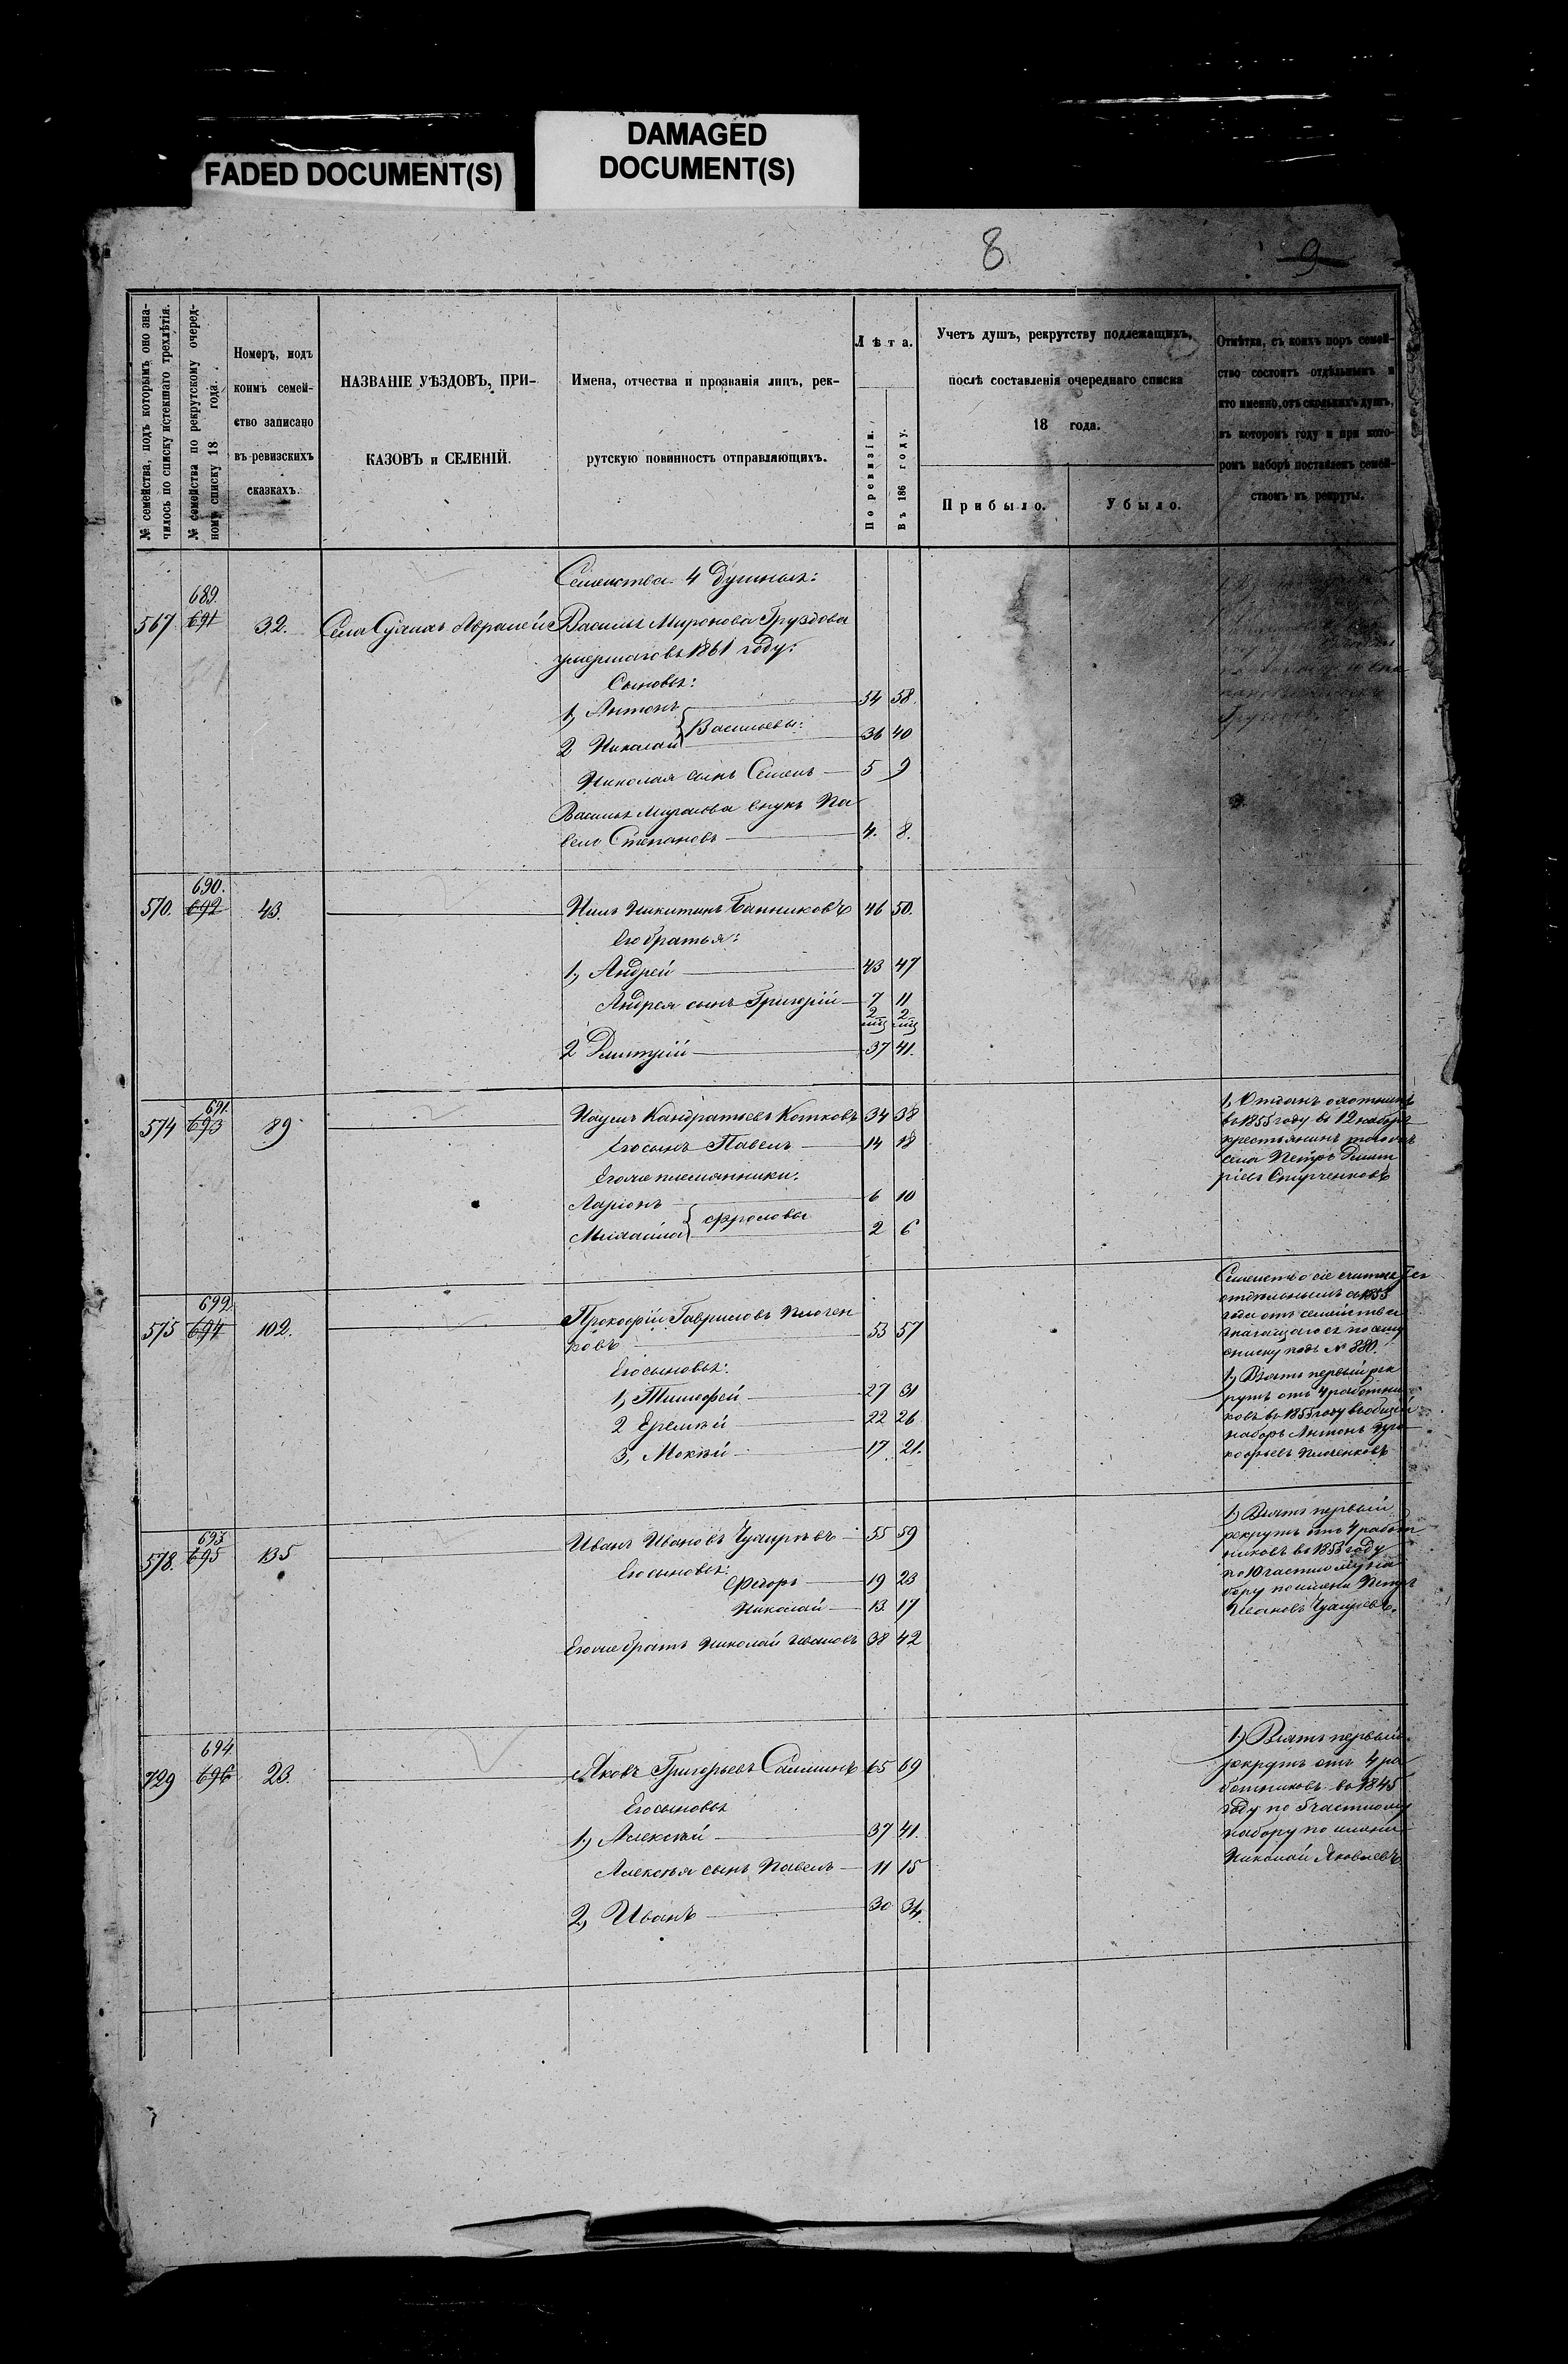 FADED DOCUMENT(S)
DAMAGED
DOCUMENT(S)
8
9
№ семейства, подъ которымъ оно зна-
чилось по списку истекшаго трехлѣтія.
№ семейства по рекрутскому очеред-
ному списку 18 года.
Номеръ, подъ
коимъ семей-
ство записано
въ ревизскихъ
сказкахъ.
НАЗВАНІЕ УѢЗДОВЪ, ПРИ-
КАЗОВЪ и СЕЛЕНІЙ.
Имена, отчества и прозванія лицъ, рек-
рутскую повинность отправляющихъ.
Лѣта.
По ревизіи.
Въ 186 году.
Учетъ душъ, рекрутству подлежащихъ,
послѣ составленія очереднаго списка
18 года.
Прибыло.
Убыло.
Отмѣтка, съ коихъ поръ семей-
ство состоитъ отдѣльнымъ и
кто именно, отъ сколькихъ душъ,
въ которомъ году и при кото-
ромъ наборѣ поставленъ семей-
ствомъ въ рекруты.
Семейства 4 душныя:
689.
567 691 32. Села Василья Миронова Груздова
умершаго въ 1861 году:
Сыновья:
1, Антонъ 54 58.
Васильевы:
2 Николай 36 40
Николая сынъ Семенъ 5 9
Василья Миронова внукъ Па
велъ Степановъ 4. 8.
690.
570. 692 43. Никитинъ Банниковъ 46 50.
Его братья:
1, Андрей 43 47
Андрея сынъ Григорій 7 11
2 2
2 Дмитрій 37 41.
691.
574 693 89 Наумъ Кандратьевъ Котковъ 34 38
Его сынъ Павелъ 14 18
Его же племянники:
Ларіонъ 6 10
Фроловы
Михайла 2 6
1, Отданъ охотникъ
въ 1855 году въ 12 наборъ
крестьянинъ тогожъ
села Петръ Дмит
ріевъ
692
575 694 102. Прокофій Гавриловъ
53 57
Его сыновья:
1, Тимофей 27 31
2 Еремѣй 22 26
3, Мокѣй 17. 21.
Семейство сіе считается
отдѣльнымъ съ 1853
года отъ семейства
значащагося по сему
списку подъ № 880.
1, Взятъ первый рек
рутъ отъ 4 работни
ковъ въ 1855 году въ общій
наборъ Антонъ Про
кофьевъ
693
578. 695 135 Иванъ Ивановъ 55 59
Его сыновья:
Федоръ 19 23
Николай 13. 17
Его же братъ Николай Ивановъ 38 42
1, Взятъ первый
рекрутъ отъ 4 работ
никовъ въ 1853 году
по 10 частному на
бору по имени Петръ
Ивановъ
694
729 696 23. Яковъ Григорьевъ 65 69
Его сыновья
1, Алексѣй 37 41.
Алексѣя сынъ Павелъ 11 15
2, Иванъ 30 34.
1, Взятъ первый
рекрутъ отъ 4 ра
ботниковъ въ 1845
году по 5 частному
набору по имени
Николай Яковлевъ.